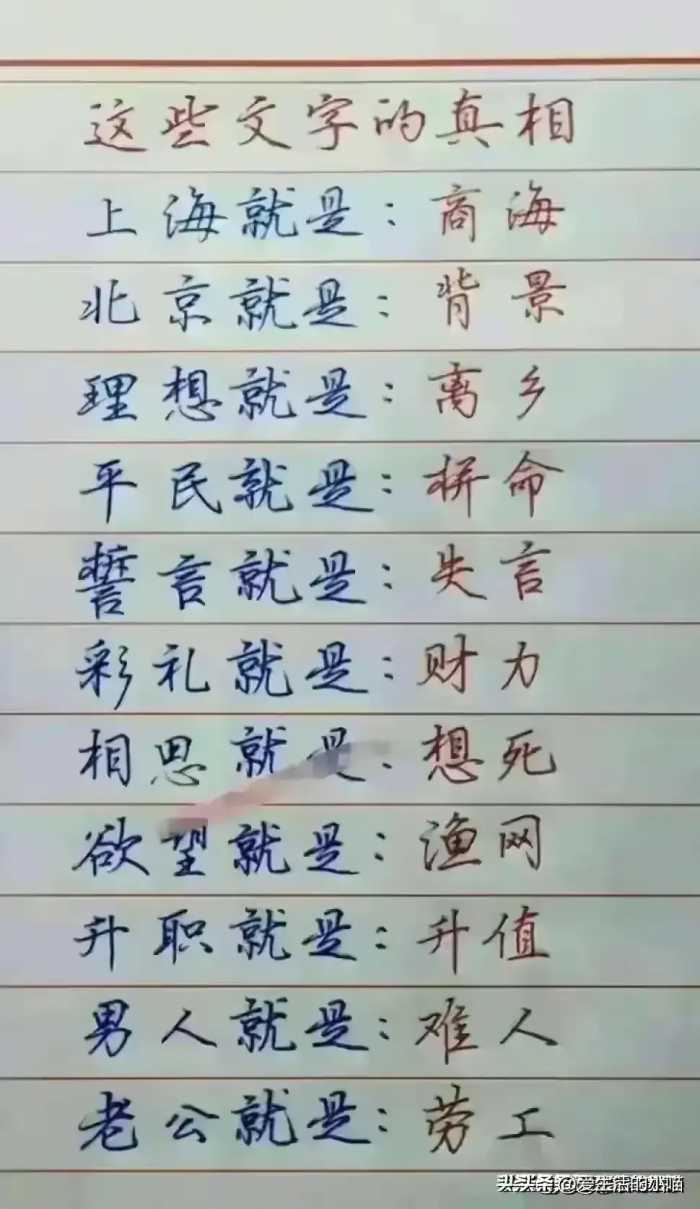 这些文字的真相
上海就是：商海
北京就是：背景
理想就是：离乡
平民就是：拼命
誓言就是：失言
彩礼就是：财力
相思就是：想死
欲望就是：渔网
升职就是：升值
男人就是：难人
老公就是：劳工
头条 @爱生活的如喵